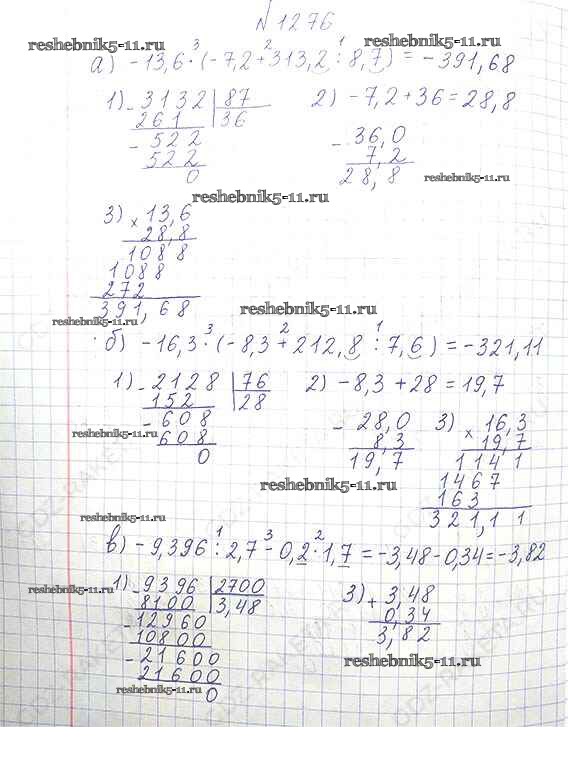 №1276
reshebnik5-11.ru
а) -13,6 · (-7,2 + 313,2 : 8,7) = -391,68
3 2 1
1) - 3132 | 87
261 | 36
- 522
522
0
2) -7,2 + 36 = 28,8
- 36,0
7,2
28,8
reshebnik5-11.ru
reshebnik5-11.ru
3) × 13,6
28,8
1088
1088
272
391,68
reshebnik5-11.ru
reshebnik5-11.ru
б) -16,3 · (-8,3 + 212,8 : 7,6) = -321,11
3 2 1
1) - 2128 | 76
152 | 28
- 608
608
0
reshebnik5-11.ru
2) -8,3 + 28 = 19,7
- 28,0
8,3
19,7
3) × 16,3
19,7
1141
1467
163
321,11
reshebnik5-11.ru
в) -9,396 : 2,7 - 0,2 · 1,7 = -3,48 - 0,34 = -3,82
1 3 2
reshebnik5-11.ru
1) - 9396 | 2700
8100 | 3,48
- 12960
10800
- 21600
21600
0
reshebnik5-11.ru
3) + 3,48
0,34
3,82
reshebnik5-11.ru